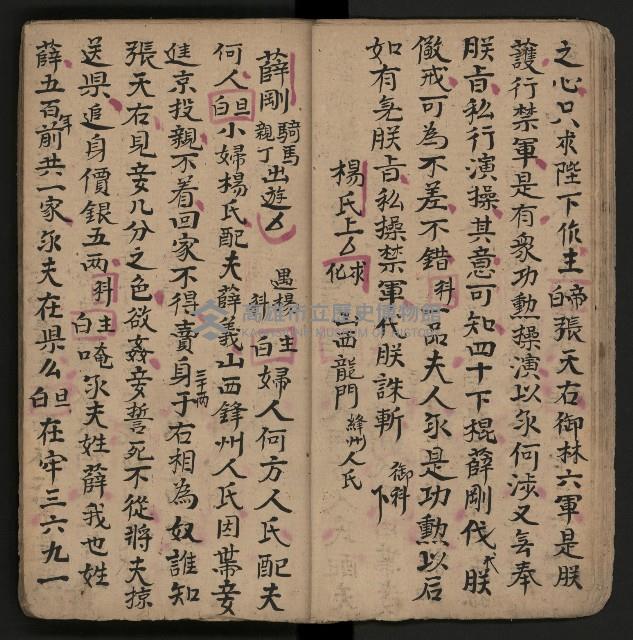 之心只求陛下作主帝白張天右御林六軍是朕
護行禁軍是有衆功勳操演以永何涉又无奉
朕旨私行演操其意可知四十下棍薛剛伐代朕
儆戒可為不差不錯科一品夫人永是功勳以后
如有旡朕旨私操禁軍代朕誅斬 御科下
楊氏上 求化 山西龍門絳州人氏
薛剛騎馬親丁出遊 遇楊科主白婦人何方人氏配夫
何人旦白小婦楊氏配夫薛義山西鋒州人氏因帶妾
進京投親不着回家不得賣身三十两于右相為奴誰知
張天右見妾几分之色欲姦妾誓死不從將夫掠
送県追身價銀五两科主白唵永夫姓薛我也姓
薛五百年前共一家永夫在県么旦白在牢三六九一
高雄市立歷史博物館
KAOHSIUNG MUSEUM OF HISTORY